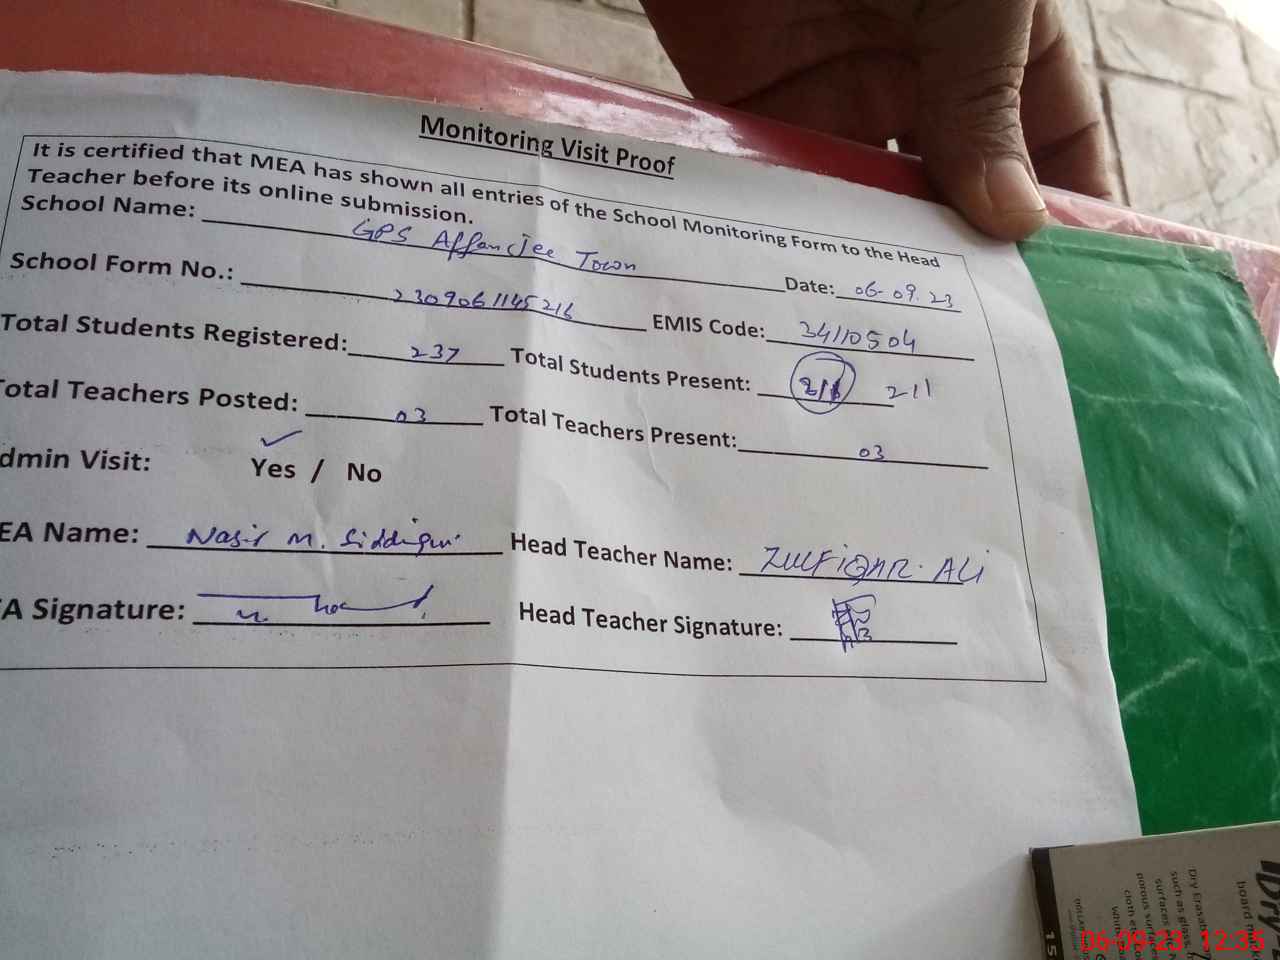 Monitoring Visit Proof
It is certified that MEA has shown all entries of the School Monitoring Form to the Head
Teacher before its online submission.
School Name: GPS Affan Jee Town Date: 06-09.23
School Form No.: 2309061145216 EMIS Code: 34110504
Total Students Registered: 237 Total Students Present: 211
Total Teachers Posted: 03 Total Teachers Present: 03
dmin Visit: Yes / No
EA Name: Nasir M. Siddiqui Head Teacher Name: ZULFIQAR. ALi
A Signature: Head Teacher Signature:
Dry Erasa
such as glass
surfaces
porous surfac
cloth
15
06-09-23 12:35